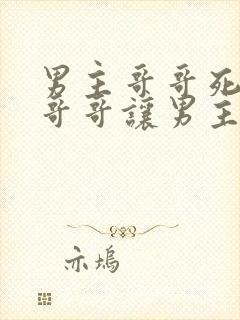 男主哥哥死
哥哥讓男主
亦塢